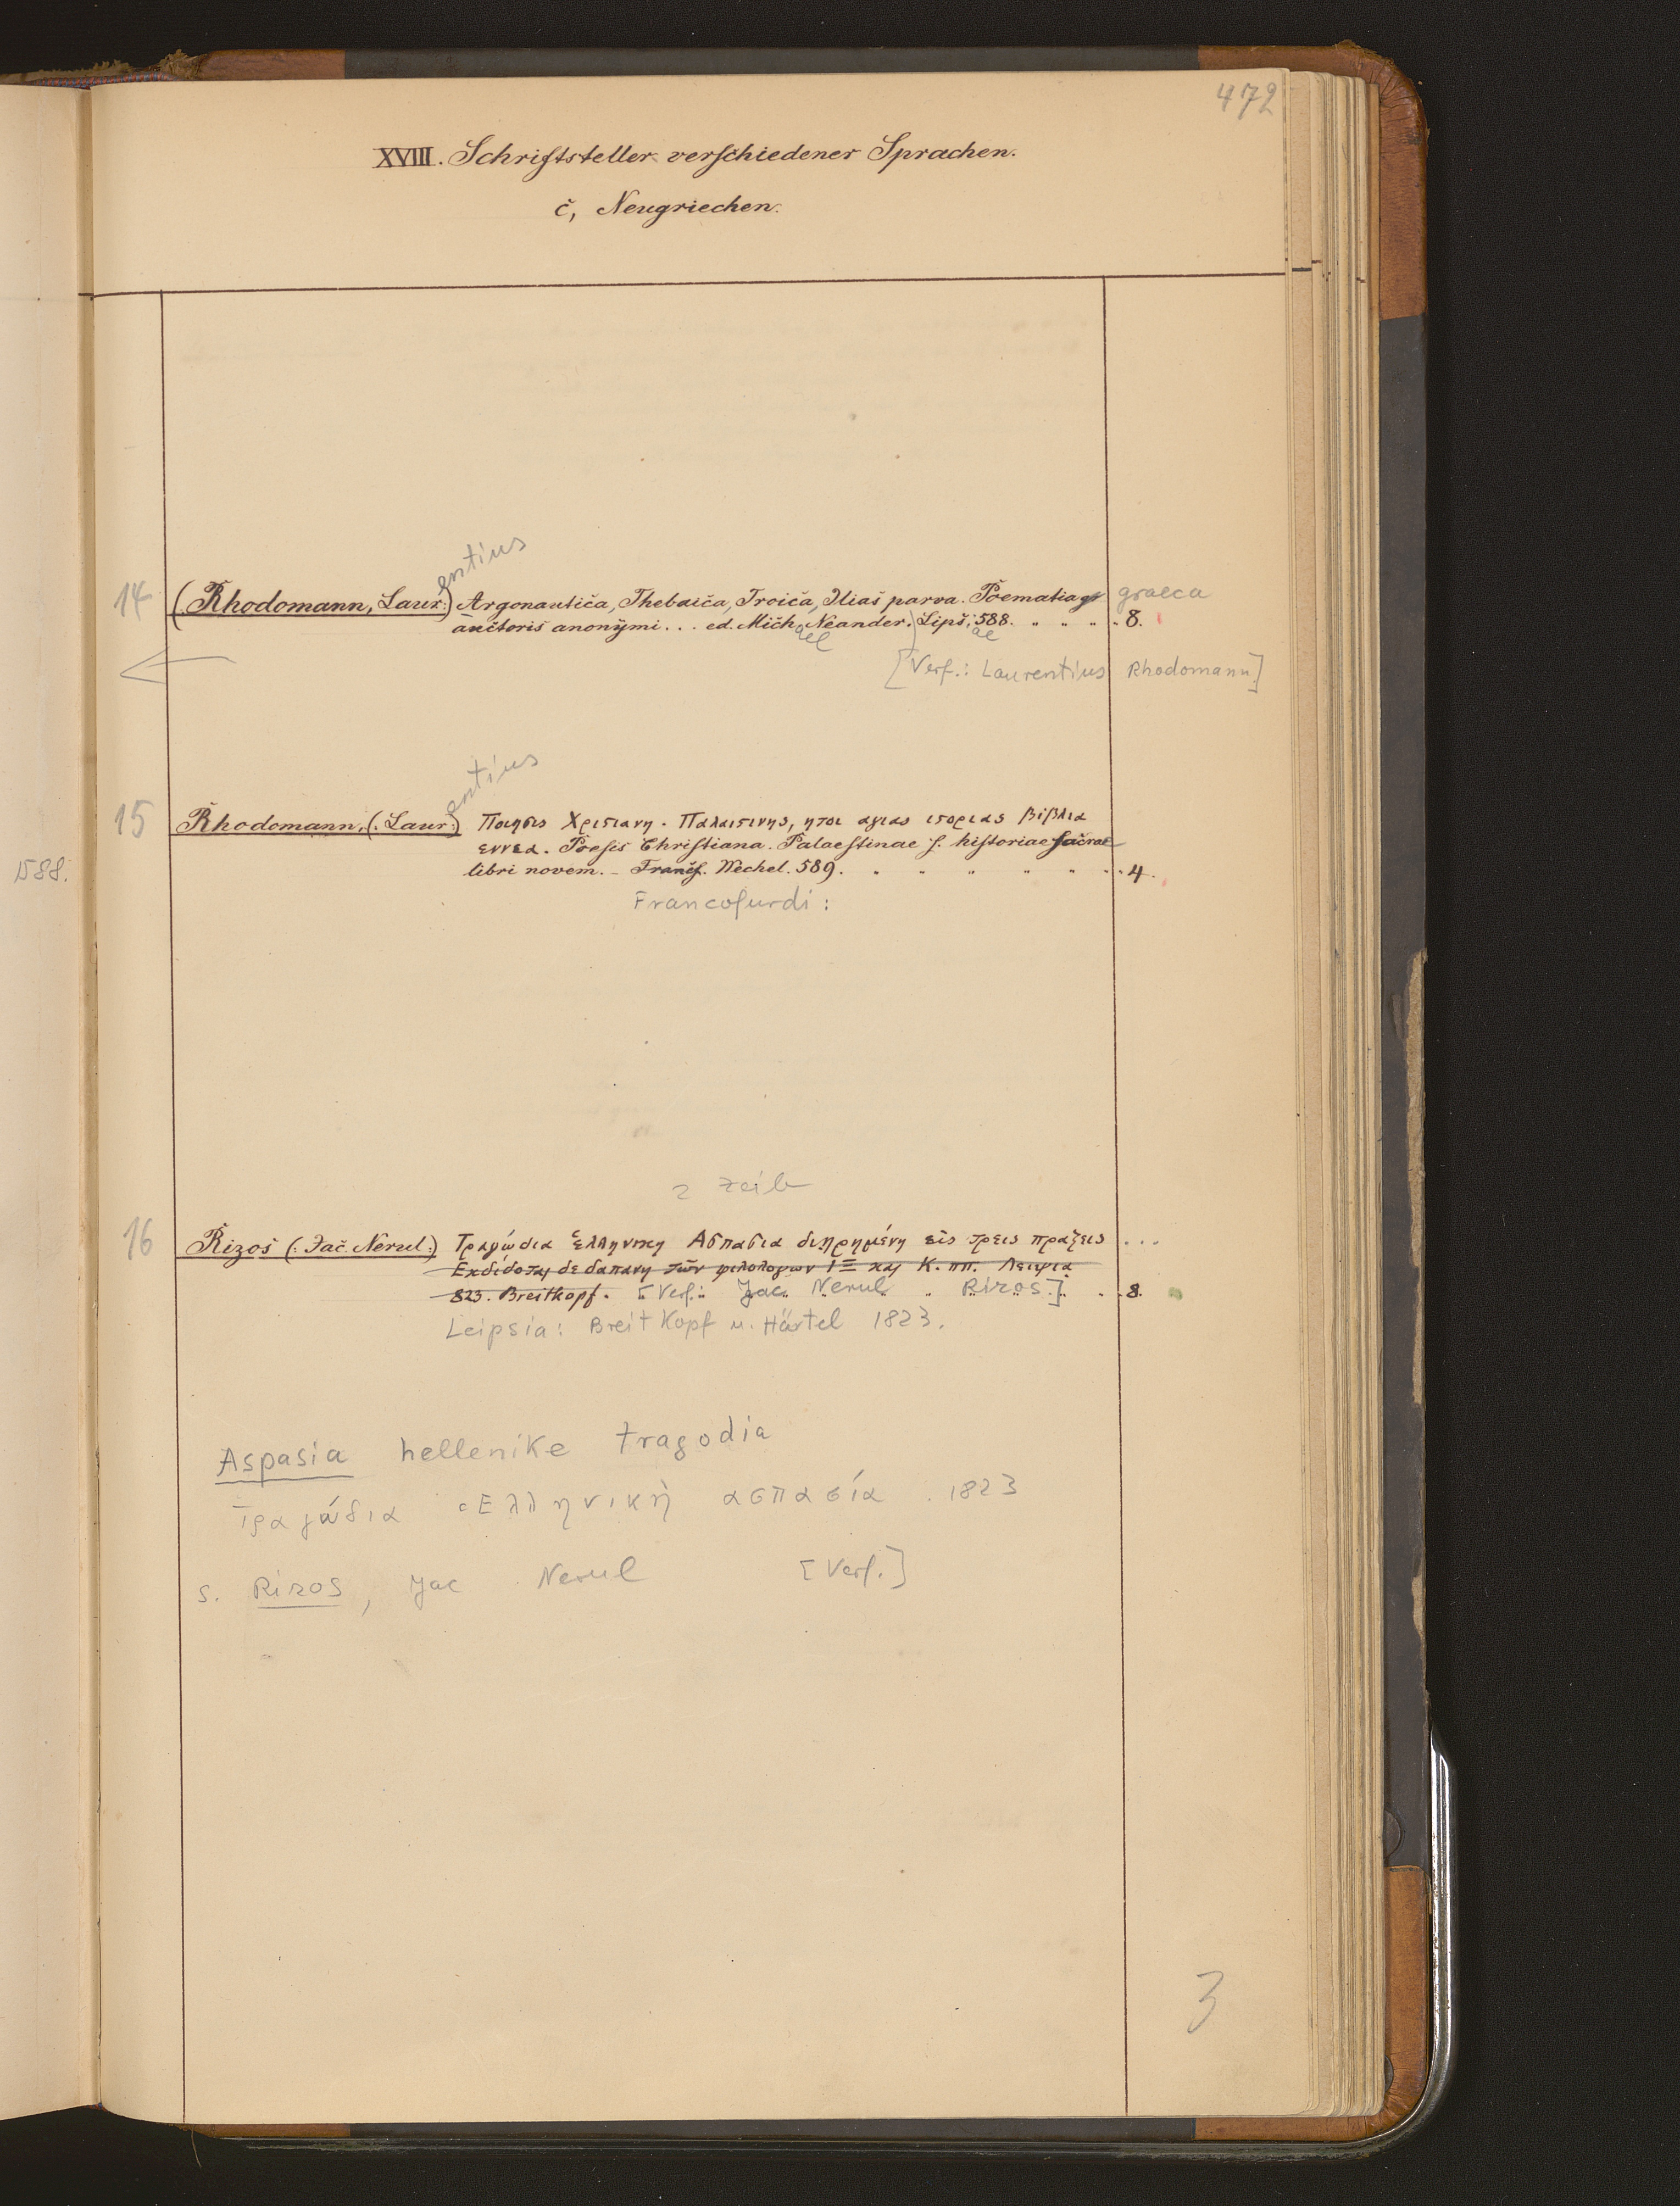 472
XVIII. Schriftsteller verschiedener Sprachen.
c, Neugriechen.
entius
14 (Rhodomann, Laur:) Argonautica, Thebaica, Troica, Ilias parva. Poematia gr graeca
auctoris anonymi... ed. Mich. Neander.) Lips. 588. " " " 8.
ael ae
[Verf.: Laurentius Rhodomann.]
entius
15 Rhodomann, (: Laur:) Ποιησις Χριστιανη. Παλαιστινης, ητοι αγιας ιστοριας βιβλια
1588.
εννεα. Poesis Christiana. Palaestinae s. historiae sacrae
libri novem. – Francf. Wechel. 589. " " " " " " 4.
Francofurdi:
2
16 Rizos (: Jac. Nerul:) Τραγώδια ἑλληνικη Ασπασια διῃρημένη εἰς τρεις πραξεις ...
Εκδίδοται δε δαπανη τῶν φιλολογων Ι. Ξ και Κ. ππ. Λειψια
823. Breitkopf. [Verf.: Jac. Nerul Rizos.] 8.
Leipsia: Breitkopf u. Härtel 1823.
Aspasia hellenike tragodia
Τραγώδια Ελληνικὴ ασπασία. 1823
s. Rizos, Jac Nerul [Verf.]
3